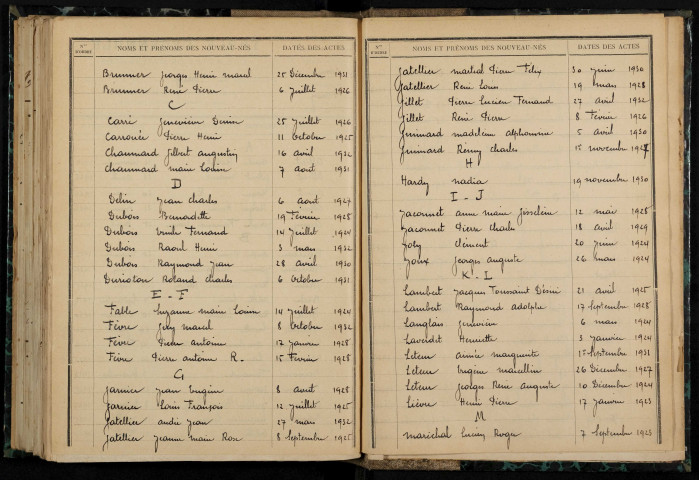 Nos D'ORDRE NOMS ET PRÉNOMS DES NOUVEAU-NÉS DATES DES ACTES
Brunner Georges Henri Marcel 25 Décembre 1931
Brunner René Pierre 6 Juillet 1926
C
Carré Geneviève 25 Juillet 1926
Carrouée Pierre Henri 11 Octobre 1925
Chaumard Gilbert Augustin 16 avril 1932
Chaumard Marie Louise 7 août 1931
D
Delin Jean Charles 6 août 1924
Dubois Bernadette 19 Février 1928
Dubois Emile Fernand 14 Juillet 1924
Dubois Raoul Henri 3 mars 1932
Dubois Raymond Jean 28 avril 1930
Roland Charles 6 octobre 1931
E - F
Fable Suzanne Marie Louise 14 Juillet 1924
Fèvre Guy Marcel 8 Octobre 1932
Fèvre Pierre Antoine 17 Janvier 1928
Fèvre Pierre Antoine R. 15 Février 1928
G
Garnier Jean Eugène 8 août 1928
Garnier Louis François 12 Juillet 1925
Gatellier André Jean 27 mars 1932
Gatellier Jeanne Marie Rose 8 Septembre 1925
Nos D'ORDRE NOMS ET PRÉNOMS DES NOUVEAU-NÉS DATES DES ACTES
Gatellier Martial Pierre Félix 30 Juin 1930
Gatellier René Louis 19 mars 1928
Gillet Pierre Lucien Fernand 27 avril 1932
Gillet René Pierre 8 Février 1926
Guimard Madeleine Alphonsine 5 avril 1930
Guimard Rémy Charles 15 novembre 1927
H
Hardy Nadia 19 novembre 1930
I - J
Jacommet Anne Marie Josselein 12 mai 1928
Jacommet Pierre Charles 18 avril 1929
Joly Clément 20 Juin 1924
Joux Georges Auguste 26 mars 1924
K - L
Lambert Jacques Toussaint Désiré 21 avril 1925
Lambert Raymond Adolphe 17 Septembre 1928
Langlais Geneviève 6 mars 1924
Henriette 3 Janvier 1924
Leteur Aimée Marguerite 1 Septembre 1931
Leteur Eugène Marcellin 26 Décembre 1927
Leteur Georges René Auguste 10 Décembre 1924
Lièvre Henri Pierre 17 Janvier 1923
M
Maréchal Lucien Roger 7 Septembre 1923